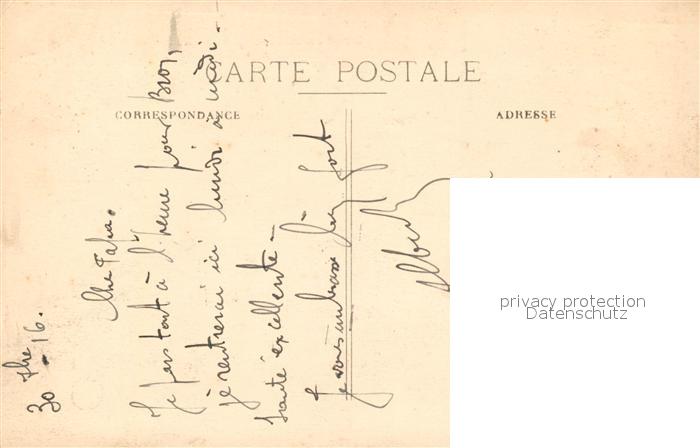 CARTE POSTALE
CORRESPONDANCE
ADRESSE
30 - 16.
Cher Papa.
Je pars tout à l'heure pour Bron,
je rentrerai ici lundi à midi.
Santé excellente -
Je vous embrasse bien fort
Albert
privacy protection
Datenschutz